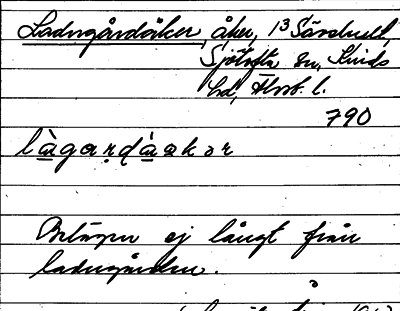 Ladugårdsåker, åker, 13 Särshult,
Sjötofta sn, Kinds
hd, Älvsb. l.
790
làgarḍàakər
Belägen ej långt från
ladugården.